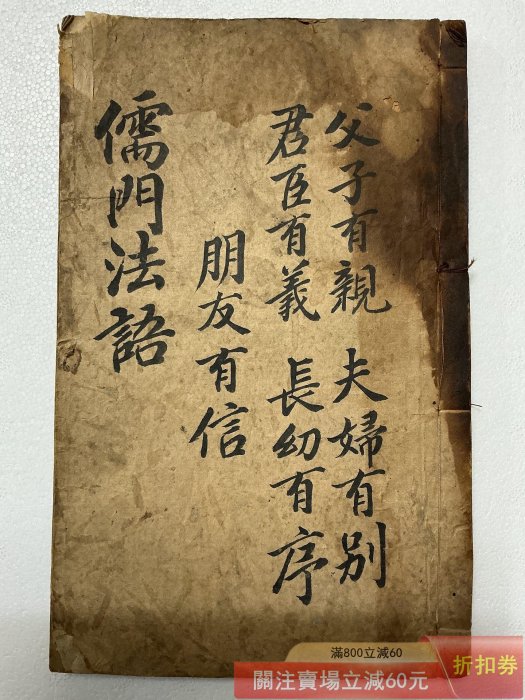 父子有親 夫婦有別
君臣有義 長幼有序
朋友有信
儒門法語
滿800立減60
關注賣場立減60元
折扣券